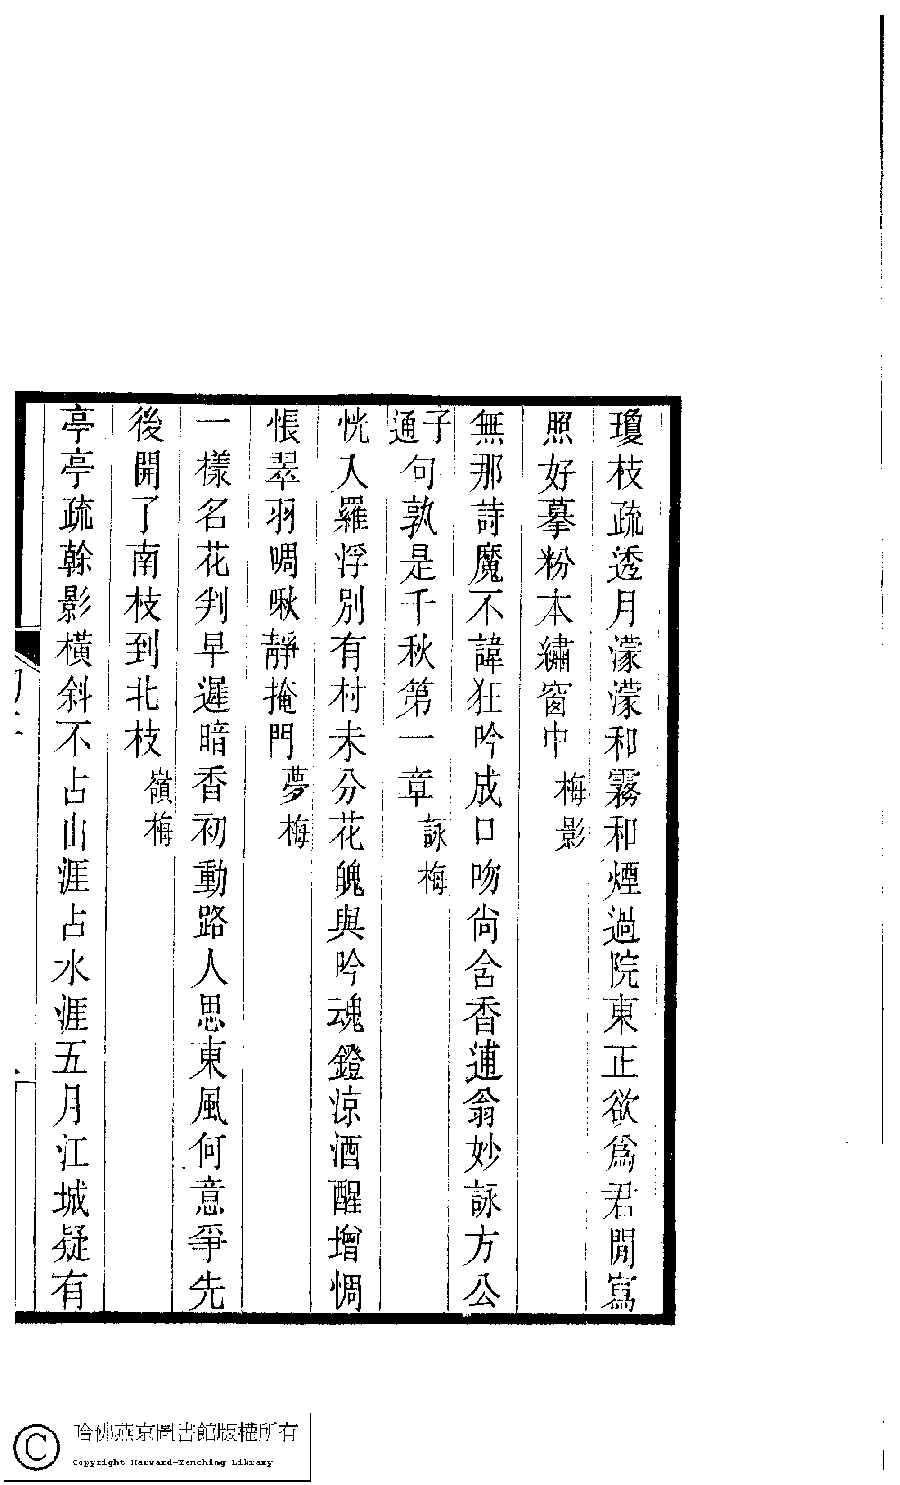 瓊枝疏透月濛濛和霧和煙過院東正欲為君閒寫
照好摹粉本繡窗中 梅影
無那詩魔不諱狂吟成口吻尙含香逋翁妙詠方公
通子句孰是千秋第一章 詠梅
恍入羅浮別有村未分花魄與吟魂鐙涼酒醒增惆
悵翠羽啁啾靜掩門 夢梅
一樣名花判早遲暗香初動路人思東風何意爭先
後開了南枝到北枝 嶺梅
亭亭疏榦影橫斜不占山涯占水涯五月江城疑有
哈佛燕京圖書館版權所有
Copyright Harvard-Yenching Library